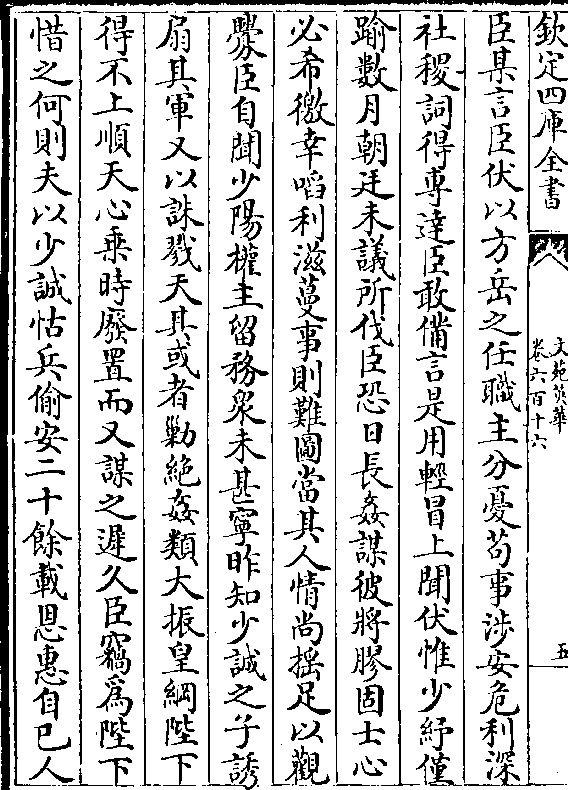 欽定四庫全書
文苑英華
卷六百十六
五
臣某言臣伏以方岳之任職主分憂苟事涉安危利深
社稷詞得專達臣敢備言是用輕冒上聞伏惟少紓僅
踰數月朝廷未議所伐臣恐日長姦謀彼將膠固士心
必希徼幸啗利滋蔓事則難圖當其人情尚摇足以觀
釁臣自聞少陽權主留務衆未甚寧昨知少誠之子誘
扇其軍又以誅戮天其或者勦絶姦類大振皇綱陛下
得不上順天心乗時廢置而又謀之遲久臣竊爲陛下
惜之何則夫以少誠怙兵偷安二十餘載恩惠自已人